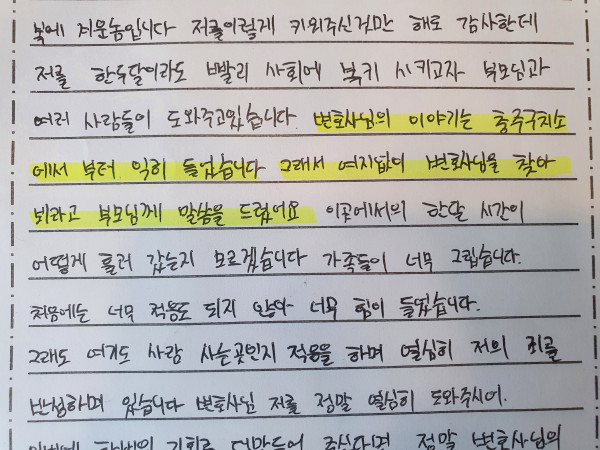 복에 겨운놈입니다 저를이렇게 키워주신것만 해도 감사한데
저를 한두달이라도 빨리 사회에 복귀 시키고자 부모님과
여러 사람들이 도와주고있습니다. 변호사님의 이야기는 충주구치소
에서 부터 익히 들었습니다 그래서 여지없이 변호사님을 찾아
뵈라고 부모님께 말씀을 드렸어요 이곳에서의 한달 시간이
어떻게 흘러 갔는지 모르겠습니다 가족들이 너무 그립습니다.
처음에는 너무 적응도 되지 않아 너무 힘이 들었습니다.
그래도 여기도 사람 사는곳인지 적응을 하며 열심히 저의 죄를
반성하며 있습니다 변호사님 저를 정말 열심히 도와주시어.
기회를 더만들어 주신다면 정말 변호사님의